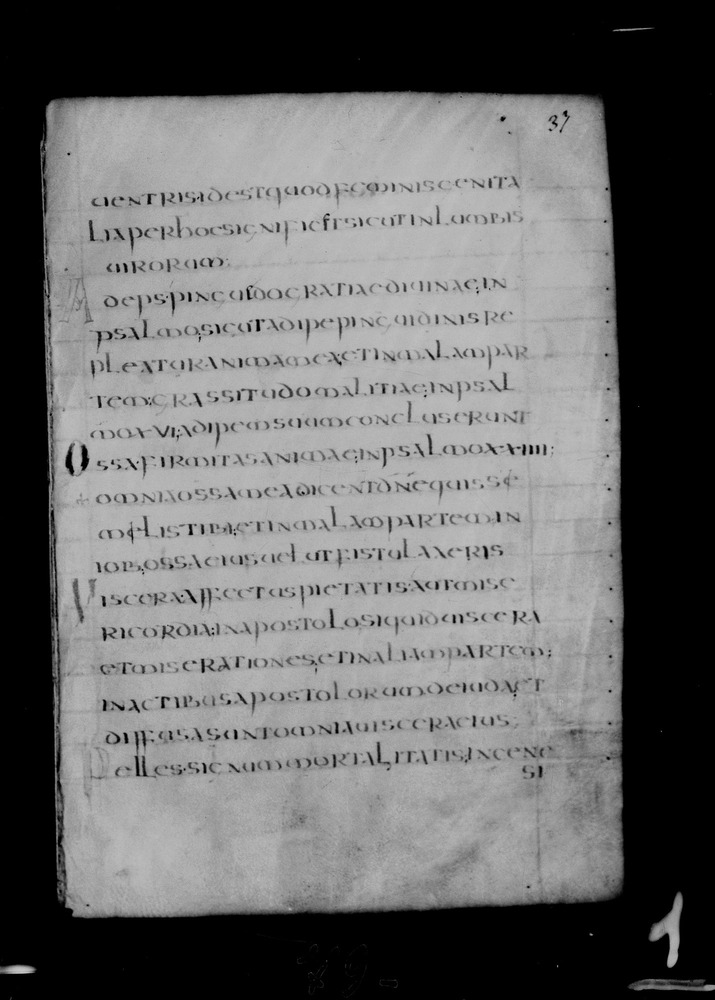 37
uentris idest quod feminis genita
lia per hoc significet sicut in lumbis
uirorum;
Adeps pinguido gratiae diuinae; in
psalmo; sicut adipe pinguidinis re
pleatur anima mea; et in malam par
tem; grassitudo malitiae; in psal
mo xvi; adipem suum concluserunt
Ossa firmitas animae; in psalmo xxxiiii;
omnia ossa mea dicent dne quis s
melis tibi; et in malam partem in
iob; ossa eius uelut fistula aeris
Viscera affectus pietatis aut mise
ricordia; in apostolo siquid uiscera
et miserationes; et in aliam partem;
in actibus apostolorum de iuda et
diffusa sunt omnia uiscera eius;
Pelles signum mortalitatis; in gene
si
1